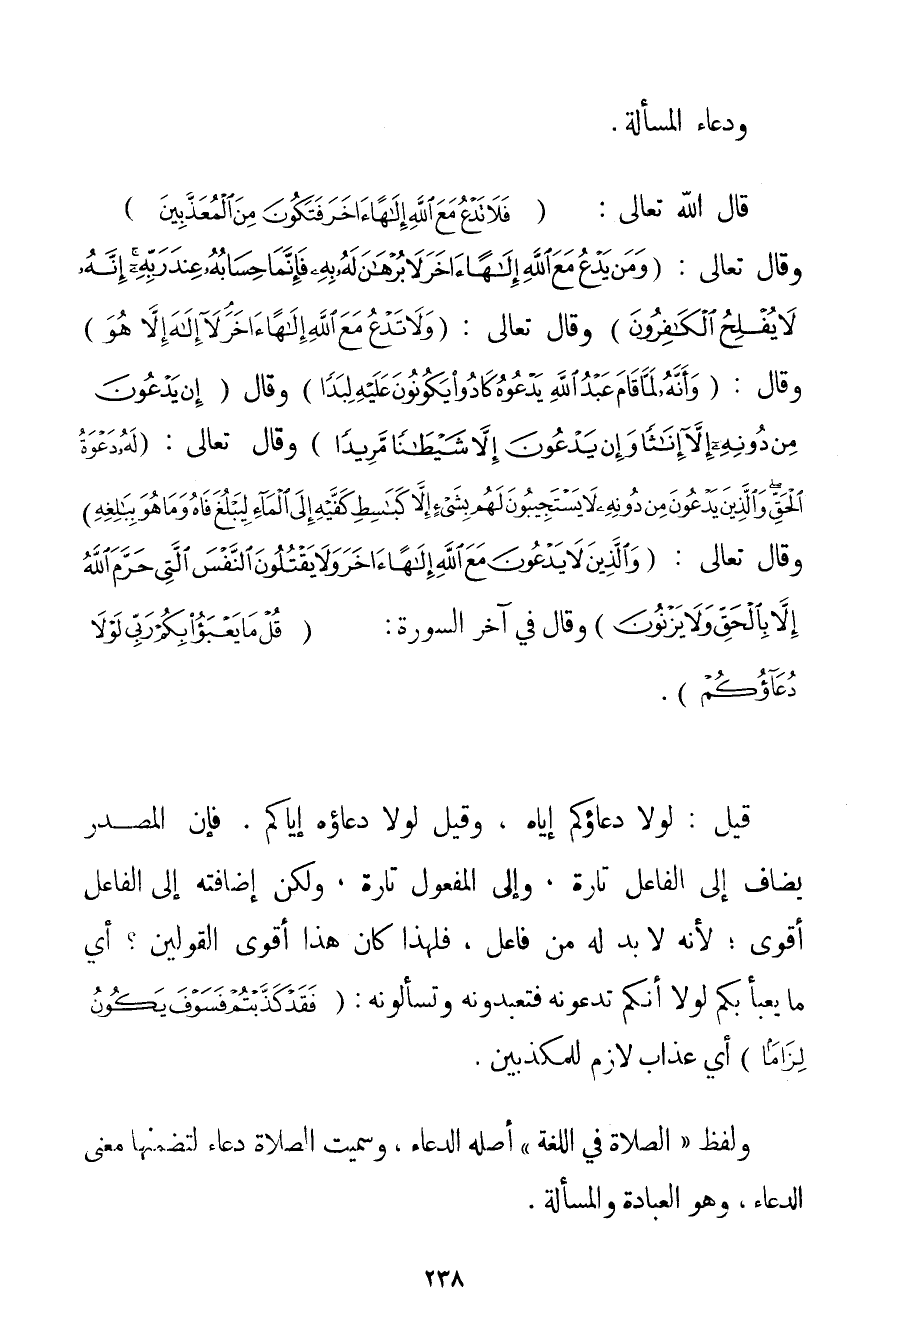 ودعاء المسألة .
قال الله تعالى : ( فَلَا تَدْعُ مَعَ ٱللَّهِ إِلَٰهًا ءَاخَرَ فَتَكُونَ مِنَ ٱلْمُعَذَّبِينَ )
وقال تعالى : ( وَمَن يَدْعُ مَعَ ٱللَّهِ إِلَٰهًا ءَاخَرَ لَا بُرْهَٰنَ لَهُۥ بِهِۦ فَإِنَّمَا حِسَابُهُۥ عِندَ رَبِّهِۦٓ ۚ إِنَّهُۥ
لَا يُفْلِحُ ٱلْكَٰفِرُونَ ) وقال تعالى : ( وَلَا تَدْعُ مَعَ ٱللَّهِ إِلَٰهًا ءَاخَرَ ۘ لَآ إِلَٰهَ إِلَّا هُوَ )
وقال : ( وَأَنَّهُۥ لَمَّا قَامَ عَبْدُ ٱللَّهِ يَدْعُوهُ كَادُوا۟ يَكُونُونَ عَلَيْهِ لِبَدًا ) وقال ( إِن يَدْعُونَ
مِن دُونِهِۦٓ إِلَّآ إِنَٰثًا وَإِن يَدْعُونَ إِلَّا شَيْطَٰنًا مَّرِيدًا ) وقال تعالى : ( لَهُۥ دَعْوَةُ
ٱلْحَقِّ ۖ وَٱلَّذِينَ يَدْعُونَ مِن دُونِهِۦ لَا يَسْتَجِيبُونَ لَهُم بِشَىْءٍ إِلَّا كَبَٰسِطِ كَفَّيْهِ إِلَى ٱلْمَآءِ لِيَبْلُغَ فَاهُ وَمَا هُوَ بِبَٰلِغِهِۦ )
وقال تعالى : ( وَٱلَّذِينَ لَا يَدْعُونَ مَعَ ٱللَّهِ إِلَٰهًا ءَاخَرَ وَلَا يَقْتُلُونَ ٱلنَّفْسَ ٱلَّتِى حَرَّمَ ٱللَّهُ
إِلَّا بِٱلْحَقِّ وَلَا يَزْنُونَ ) وقال في آخر السورة : ( قُلْ مَا يَعْبَؤُا۟ بِكُمْ رَبِّى لَوْلَا
دُعَآؤُكُمْ ) .
قيل : لولا دعاؤكم إياه ، وقيل لولا دعاؤه إياكم . فإن المصدر
يضاف إلى الفاعل تارة . وإلى المفعول تارة . ولكن إضافته إلى الفاعل
أقوى ؛ لأنه لا بد له من فاعل ، فلهذا كان هذا أقوى القولين ؟ أي
ما يعبأ بكم لولا أنكم تدعونه فتعبدونه وتسألونه : ( فَقَدْ كَذَّبْتُمْ فَسَوْفَ يَكُونُ
لِزَامًۢا ) أي عذاب لازم للمكذبين .
ولفظ « الصلاة في اللغة » أصله الدعاء ، وسميت الصلاة دعاء لتضمنها معنى
الدعاء ، وهو العبادة والمسألة .
٢٣٨